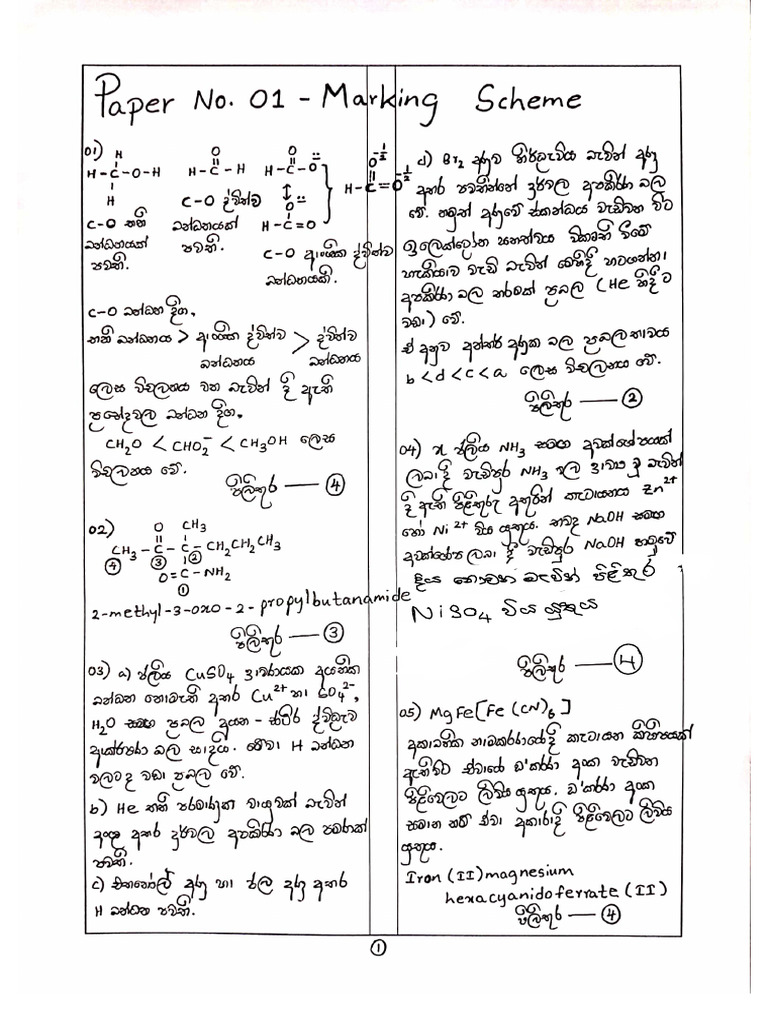 Paper No. 01 - Marking Scheme
01)
H O O O -1/2
H-C-O-H H-C-H H-C-O H-C=O -1/2
H C-O ද්විත්ව ↕ O
C-O තනි බන්ධනයක් H-C=O
බන්ධනයක් පවතී. C-O ආංශික ද්විත්ව
පවතී. බන්ධනයකි.
C-O බන්ධන දිග,
තනි බන්ධනය > ආංශික ද්විත්ව > ද්විත්ව
බන්ධනය බන්ධනය
ලෙස විචලනය වන බැවින් දී ඇති
ප්‍රභේදවල බන්ධන දිග,
CH₂O < CHO₂⁻ < CH₃OH ලෙස
විචලනය වේ.
පිළිතුර — ④
02)
O CH₃
CH₃-C-C-CH₂CH₂CH₃
④ ③ ②
O=C-NH₂
①
2-methyl-3-oxo-2-propylbutanamide
පිළිතුර — ③
03) a) ජලීය CuSO₄ ද්‍රාවණයක අයනික
බන්ධන නොමැති අතර Cu²⁺ හා SO₄²⁻,
H₂O සමඟ ප්‍රබල අයන - ස්ථිර ද්විධ්‍රැව
ආකර්ෂණ බල සාදයි. මේවා H බන්ධන
වලටද වඩා ප්‍රබල වේ.
b) He තනි පරමාණුක වායුවක් බැවින්
අංශු අතර දුර්වල අපකිරණ බල පමණක්
පවතී.
c) එතනෝල් අණු හා ජල අණු අතර
H බන්ධන පවතී.
d) Br₂ අණුව නිර්ධ්‍රැවීය බැවින් අණු
අතර පවතින්නේ දුර්වල අපකිරණ බල
වේ. නමුත් අණුවේ ස්කන්ධය වැඩිවන විට
ඉලෙක්ට්‍රෝන ඝනත්වය විකෘති වීමේ
හැකියාව වැඩි බැවින් මෙහිදී හටගන්නා
අපකිරණ බල තරමක් ප්‍රබල (He හිදී ට
වඩා) වේ.
ඒ අනුව අන්තර් අණුක බල ප්‍රබලතාවය
b < d < c < a ලෙස විචලනය වේ.
පිළිතුර — ②
04) x ජලීය NH₃ සමඟ අවක්ෂේපයක්
ලබා දී වැඩිපුර NH₃ තුල ද්‍රාව්‍ය වූ බැවින්
දී ඇති පිළිතුරු අතුරින් කැටායනය Zn²⁺
හෝ Ni²⁺ විය යුතුය. තවද NaOH සමඟ
අවක්ෂේප ලබා දී වැඩිපුර NaOH හමුවේ
දිය නොවන බැවින් පිළිතුර
NiSO₄ විය යුතුය
පිළිතුර — ④
05) MgFe[Fe(CN)₆]
අකාබනික නාමකරණයේදී කැටායන කිහිපයක්
ඇතිවිට ඒවායේ ඔ'කරණ අංක වැඩිවන
පිළිවෙලට ලිවිය යුතුය. ඔ'කරණ අංක
සමාන නම් ඒවා අකාරාදි පිළිවෙලට ලිවිය
යුතුය.
Iron (II) magnesium
hexacyanidoferrate (II)
පිළිතුර — ④
①